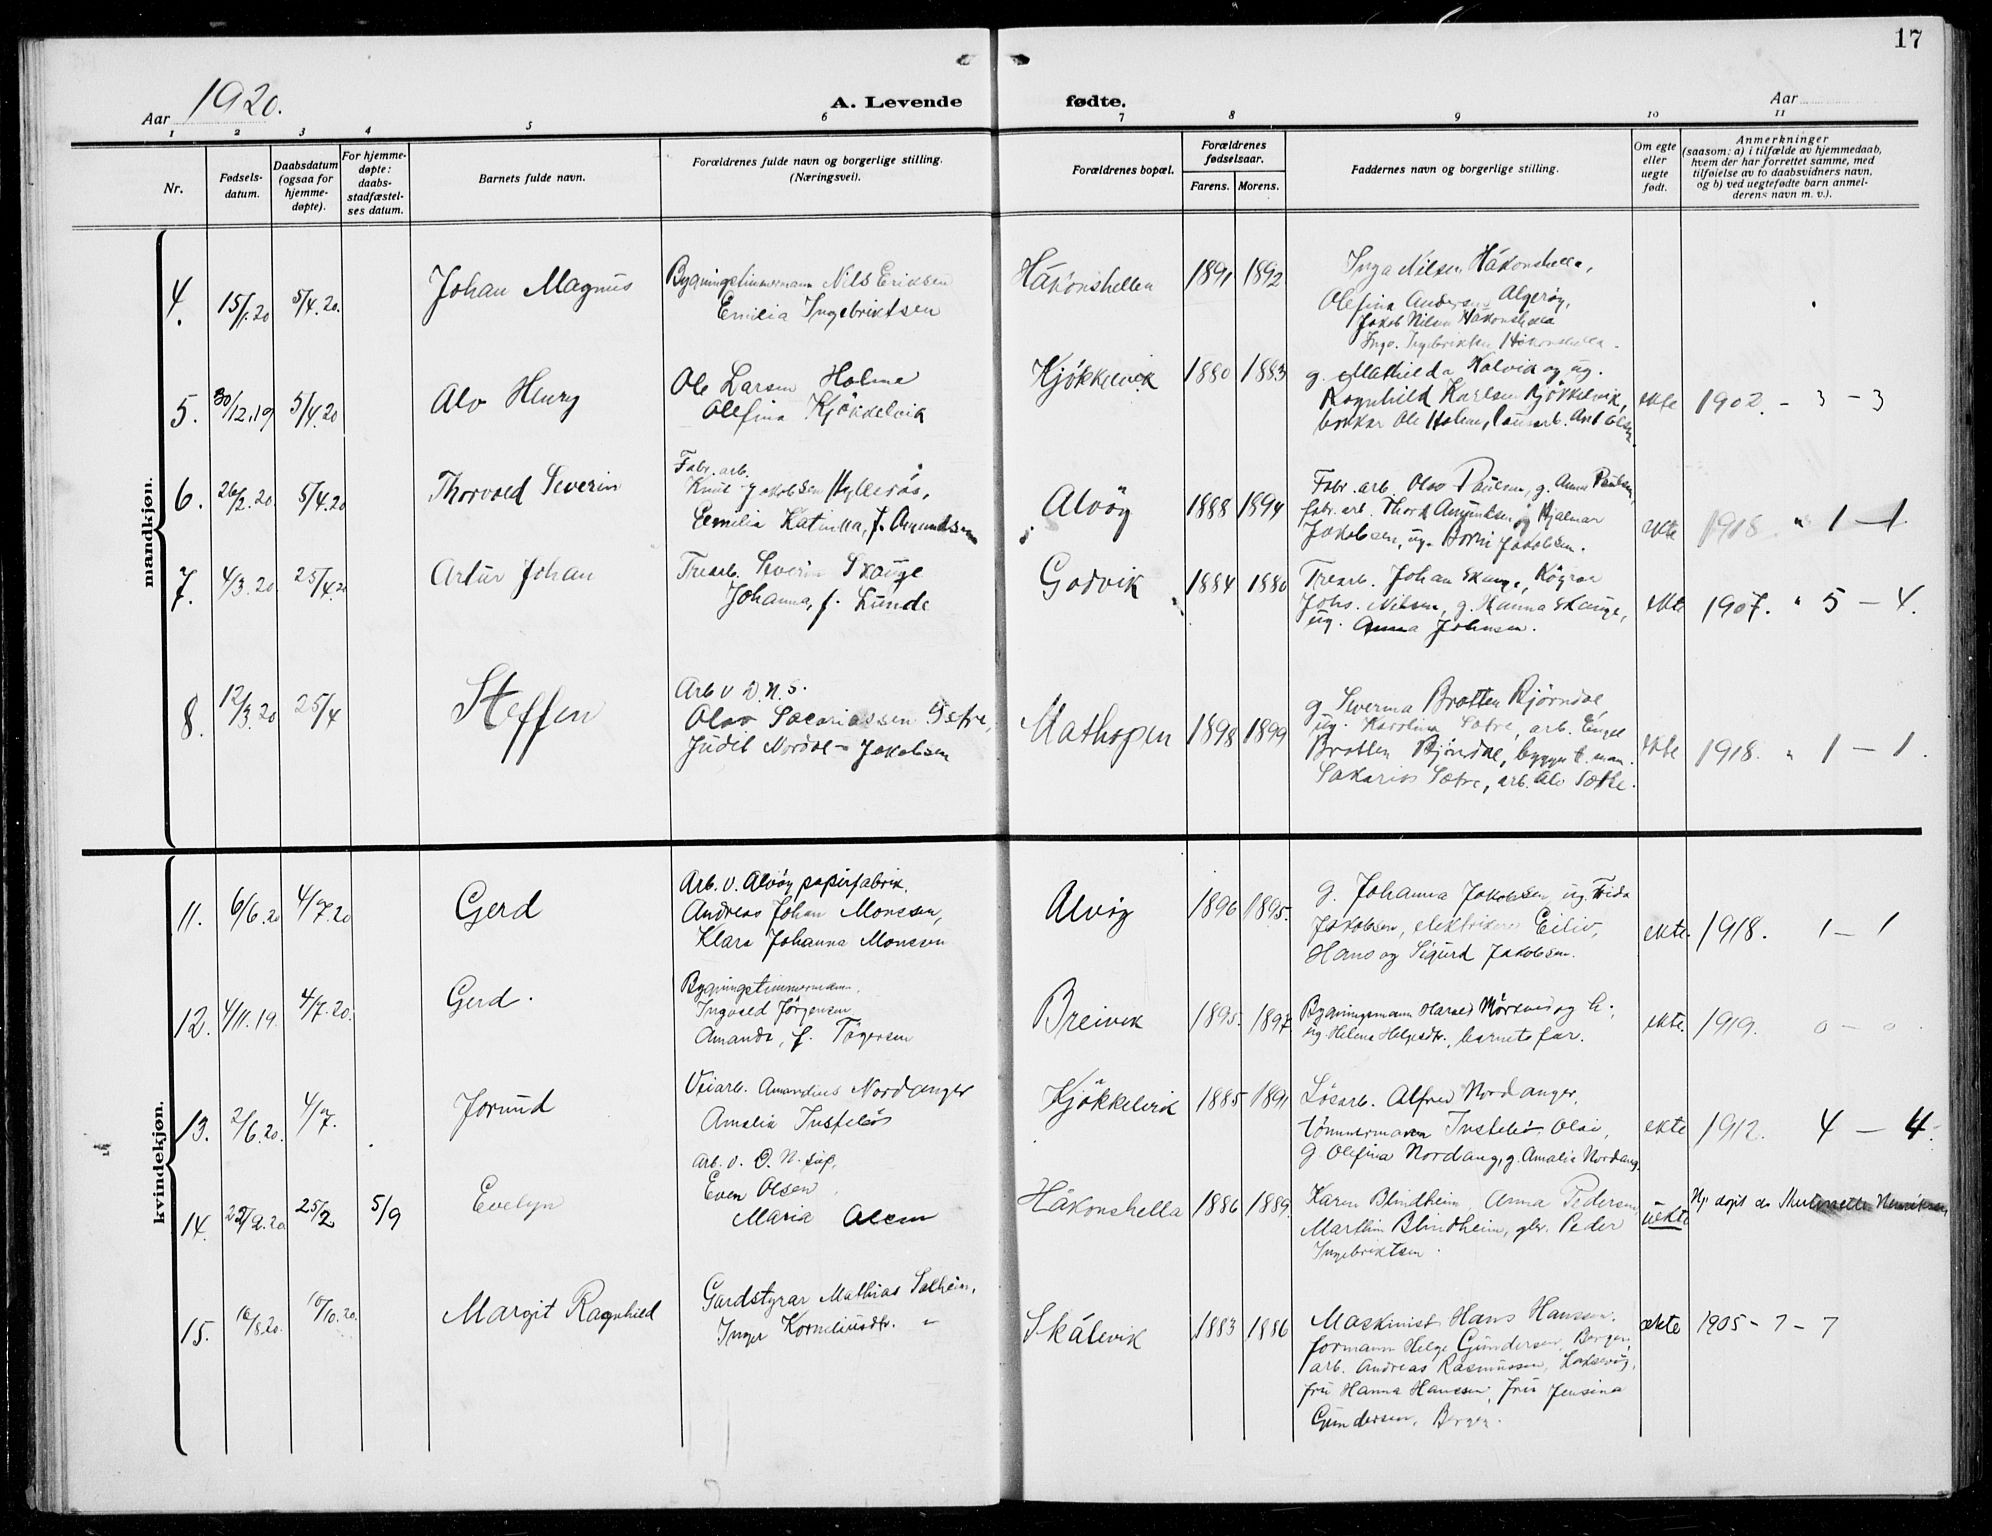 17
Aar 1920.
A. Levende fødte.
Aar
1 2 3 4 5 6 7 8 9 10 11
Nr.
Fødsels-
datum.
Daabsdatum
(ogsaa for
hjemme-
døpte).
For hjemme-
døpte:
daabs-
stadfæstel-
ses datum.
Barnets fulde navn.
Forældrenes fulde navn og borgerlige stilling.
(Næringsvei).
Forældrenes bopæl.
Forældrenes
fødselsaar.
Farens. Morens.
Faddernes navn og borgerlige stilling.
Om egte
eller
uegte
født.
Anmerkninger
(saasom: a) i tilfælde av hjemmedaab,
hvem der har forrettet samme, med
tilføielse av to daabsvidners navn,
og b) ved uegtefødte barn anmel-
derens navn m. v.).
mandkjøn.
4. 15/1.20 5/4.20. Johan Magnus
Bygningstimmermann Nils Eriksen
Emilia Ingebriktsen
Håkonshellen 1891 1892
Inga Nilsen Håkonshella,
Olefina Andersen Algerøy,
Jakob Nilsen Håkonshella
Inga Ingebriktsen Håkonshella.
5. 30/12.19 5/4.20 Alv Henry
Ole Larsen Holme
Olefina Kjøkkelvik
Kjøkkelvik 1880 1883
g. Mathilda Kolvik og ug.
Ragnhild Karlsen Kjøkkelvik,
Ole Holme,
ekte 1902. - 3 - 3
6. 26/2.20 5/4.20 Thorvald Severin
Fabr. arb.
Knut Jakobsen Hyllerås,
Emilia Katinka, f. Amundsen
Alvøy 1888 1894
Fabr. arb. Olav Paulsen, g. Anna Paulsen,
fabr. arb. Thord Amundsen og Hjalmar
Jakobsen, ug. Borni Jakobsen.
ekte 1918. " 1 - 1
7. 4/3.20. 25/4.20 Artur Johan
Trearb. Severin Skauge
Johanna, f. Lunde
Godvik 1884 1880
Trearb. Johan Skauge,
Johs. Nilsen, g. Hanna Skauge,
ug. Anna Johnsen.
ekte 1907. " 5 - 4.
8. 12/3.20 25/4 Steffen
Arb v D. N. S.
Olav Sacariassen Setre,
Judit Nordal - Jakobsen
Mathopen 1898 1899
g. Severina Bratten Bjørndal,
ug. Karolina Sætre, arb. Engel
Bratten Bjørndal, byggn t. man.
Sakarias Sætre, arb. Alv Sætre.
ekte 1918. " 1 - 1.
kvindekjøn.
11. 6/6.20 4/7.20 Gerd
Arb. v. Alvøy papirfabrik.
Andreas Johan Monssen,
Klara Johanna Monssen
Alvøy 1896 1895.
g. Johanna Jakobsen, ug. Frida
Jakobsen, elektriker Eiliv,
Hans og Sigurd Jakobsen.
ekte. 1918. 1 - 1
12. 4/11.19. 4/7.20. Gerd.
Bygningstimmermann.
Ingvald Jörgensen
Amanda, f. Tögersen
Breivik 1895. 1897.
Bygningsmann Harald og h.;
ug Helena Helgesdtr., barnets far.
ekte. 1919. 0 - 0.
13. 2/6.20. 4/7. Jorund
Veiarb. Amandus Nordanger
Amalia
Kjökkelvik 1885 1891
Løsarb. Alfred Nordanger,
tömmermann Olai,
g Olefina Nordang, g. Amalia Nordang.
ekte 1912. 4 - 4.
14. 22/2.20. 25/2 5/9 Evelyn
Arb. v. D. N. sip.
Even Olsen
Maria Olsen
Håkonshella 1886 1889.
Karen Blindheim Anna Pedersen
Martin Blindheim, gbr. Peder
Ingebriktsen.
uekte Hj døpt av
15. 16/8.20. 10/10.20. Margit Ragnhild
Gardstyrar Mathias Solheim,
Inger Korneliusdtr. "
Skålevik 1883 1886
Maskinist Hans Hanssen,
formann Helge Gundersen, Bergen,
arb. Andreas Rasmussen, Laksevåg,
fru Hanna Hanssen, fru Jensina
Gundersen, Bergen.
ekte 1905 - 7 - 7